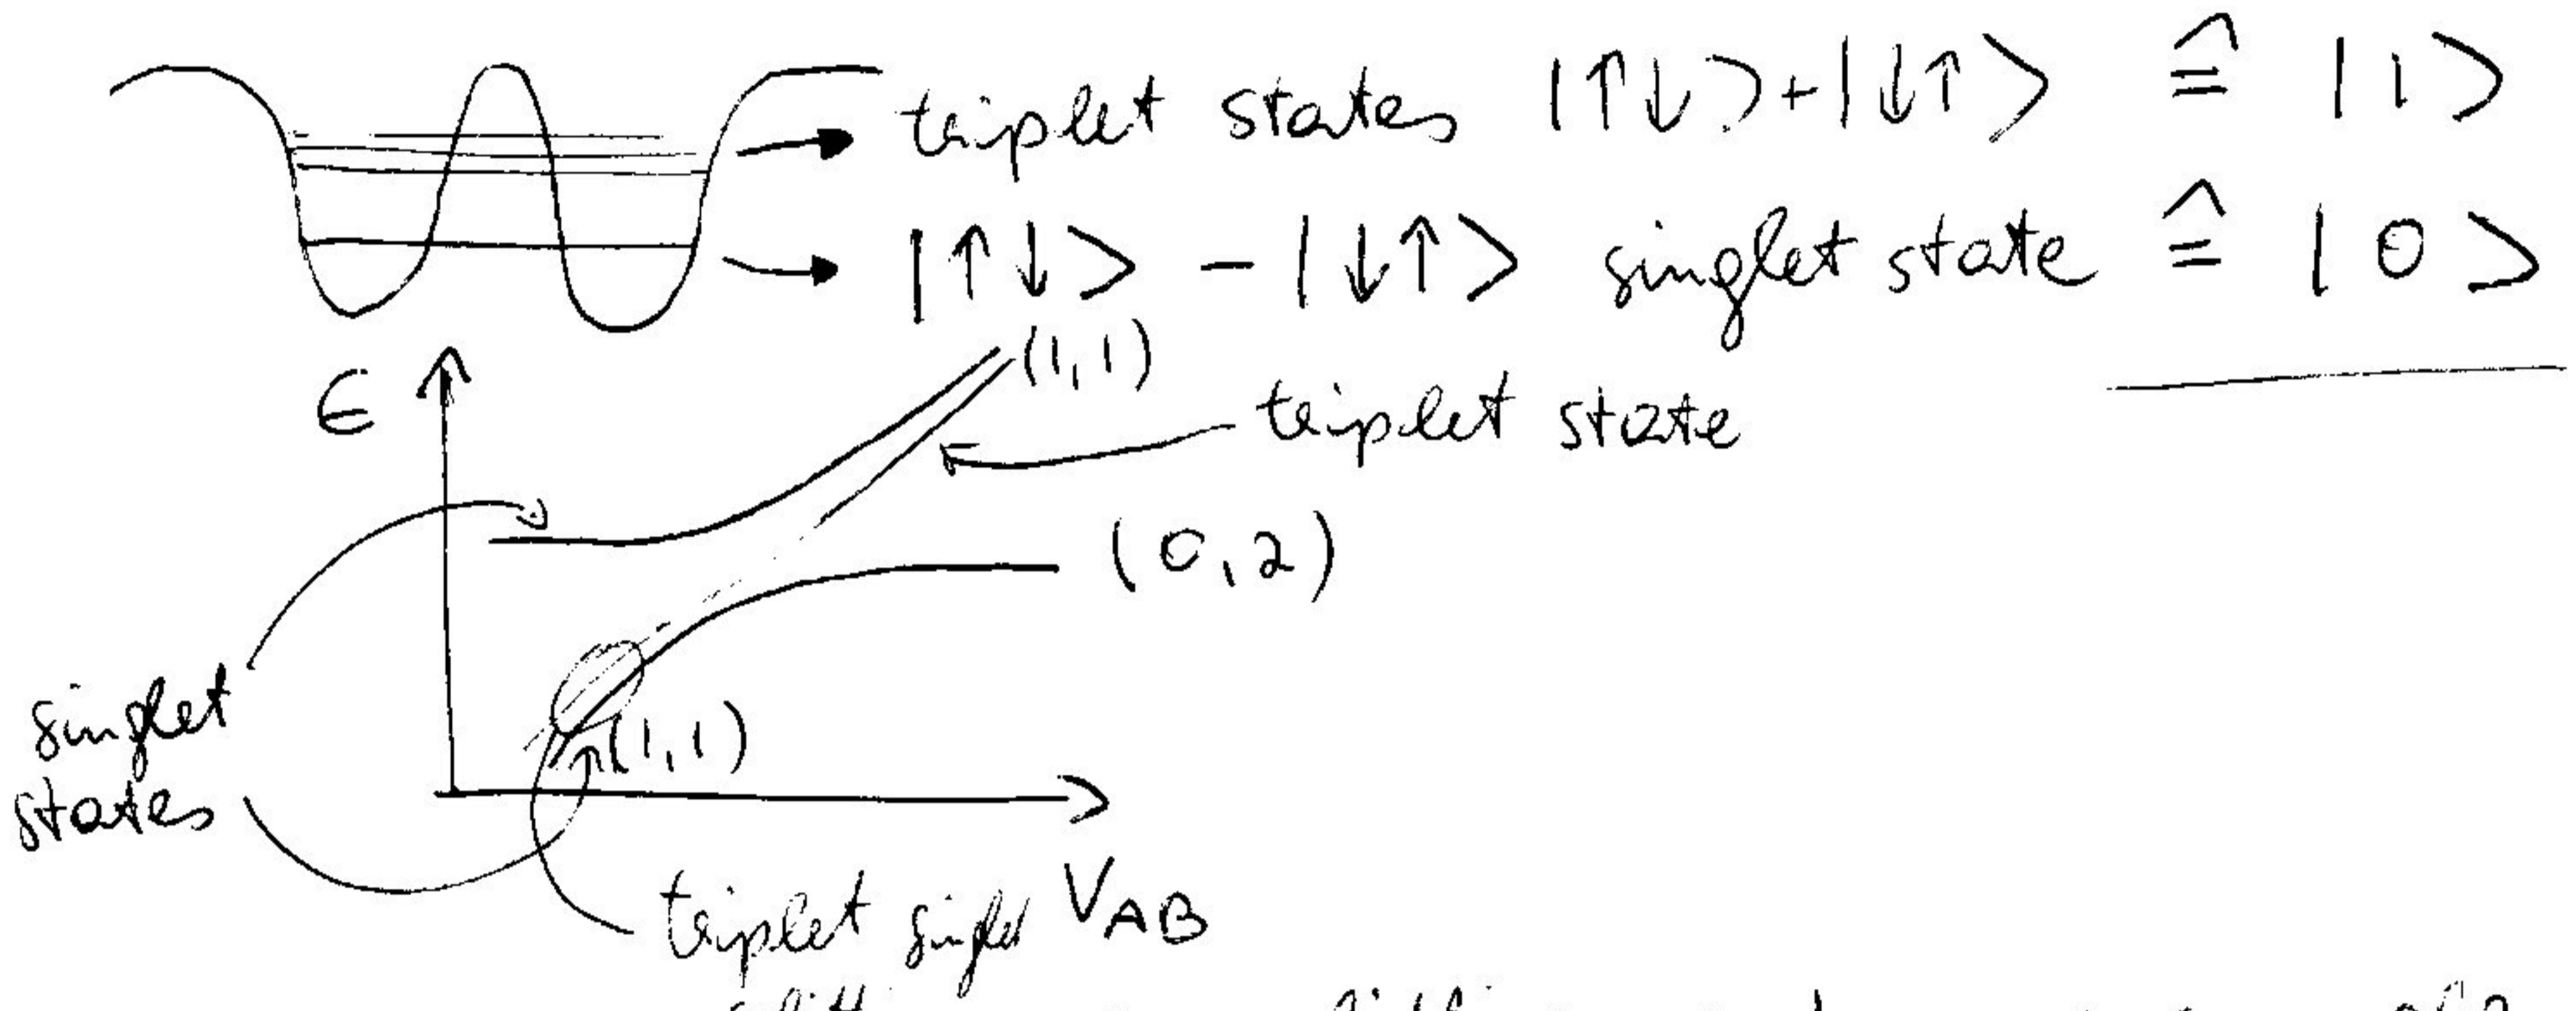 triplet states |↑↓⟩+|↓↑⟩ ≙ |1⟩
|↑↓⟩ - |↓↑⟩ singlet state ≙ |0⟩
ϵ
(1,1)
triplet state
(0,2)
singlet
states
(1,1)
triplet singlet
V_AB